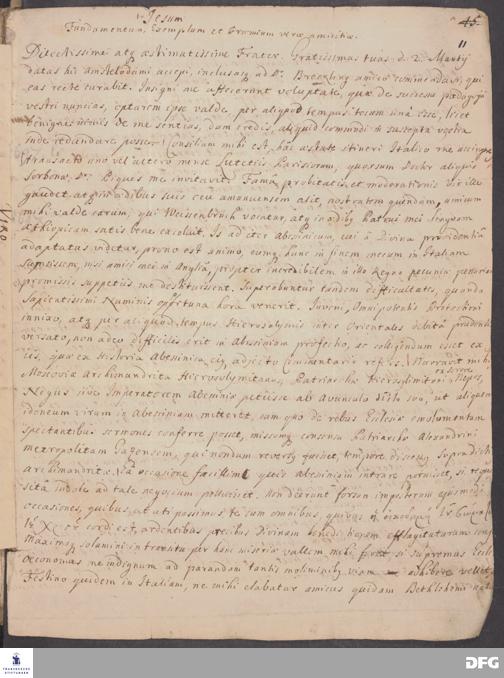 Jesum
Fundamentum, Exemplum et Præmium veræ amicitiæ.
45.
11
Dilectissime atq æstimatissime Frater. Gratissimas tuas d. 2. Martij
datas hic amstelodami accepi, inclusas ad Dr. Breckling amice
eas recte curabit. Insigni me affecerunt voluptate, quæ de successu pædagogij
vestri nuncias, optarem ipse valde per aliquod tempus tecum esse, licet
benignas nimis de me sentias, dum credis, aliquid commodi in suscepta vestra
inde redundare posse. Consilium mihi est, hac æstate itineri Italico me accingere
transacto uno vel altero mense Lutetiæ Parisiorum, quorsum Doctor aliquis
Sorbonæ, Dr. Piques me invitavit. Fama probitatis et moderationis Vir ille
gaudet, atq in ædibus suis ceu amanuensem alit, nostratem quendam, amicum
mihi valde carum, qui Weisenbruch vocatur, atq in ædibus Patrui mei linguam
Æthiopicam satis bene excoluit. Is ad iter Abessinicum, cui a Divina providentia
adaptatus videtur, prono est animo, eumq hunc in finem mecum in Italiam
sumsissem, nisi amici mei in Anglia, propter incredibilem in illo Regno pecuniæ penuriam
promissis suppetiis me destituissent. Superabuntur tandem difficultates, quando
Sapientissimi Numinis opportuna hora venerit. Juveni, Omnipotentis Protectioni
innixo, atq per aliquod tempus Hierosolymis inter Orientales debita prudentia
versato, non adeo difficilis erit in Abessiniam profectio, ac colligendum esset ex
iis, quæ ex Historia Abessinica eiq adjecto Commentario refers. Narravit mihi
Moscoviæ Archimandrita Hierosolymitanus, Patriarchæ Hierosolimitani Nepos,
Negus sive Imperatorem Abessiniæ petiisse ab Avunculo dicto suo, ut aliquem
idoneum virum in Abessiniam mitteret, cum quo de rebus Ecclesiæ emolumentum
spectantibus sermones conferre posset, missumq consensu Patriarchæ Alexandrini
metropolitam Gazensem, qui nondum reversus fuisset, tempore discessus supradicti
archimandritæ. Ea occasione facillime quis Abessiniam intrare potuisset, si
indole ad tale negocium polluisset. Non deerunt forsan imposterum ejusmodi
occasiones, quibus, ut uti possimus Te cum omnibus, quibus
cordi est, ardentibus precibus Divinam benedictionem efflagitaturum
Maximoq solamini in transitu per hanc miseriæ vallem mihi foret si supremus Ecclesiæ
Œconomus me indignum ad parandam tantis moliminibus viam adhibere vellet.
Festino quidem in Italiam, ne mihi elabatur amicus quidam Bethlehemi
FRANCKESCHE STIFTUNGEN
DFG